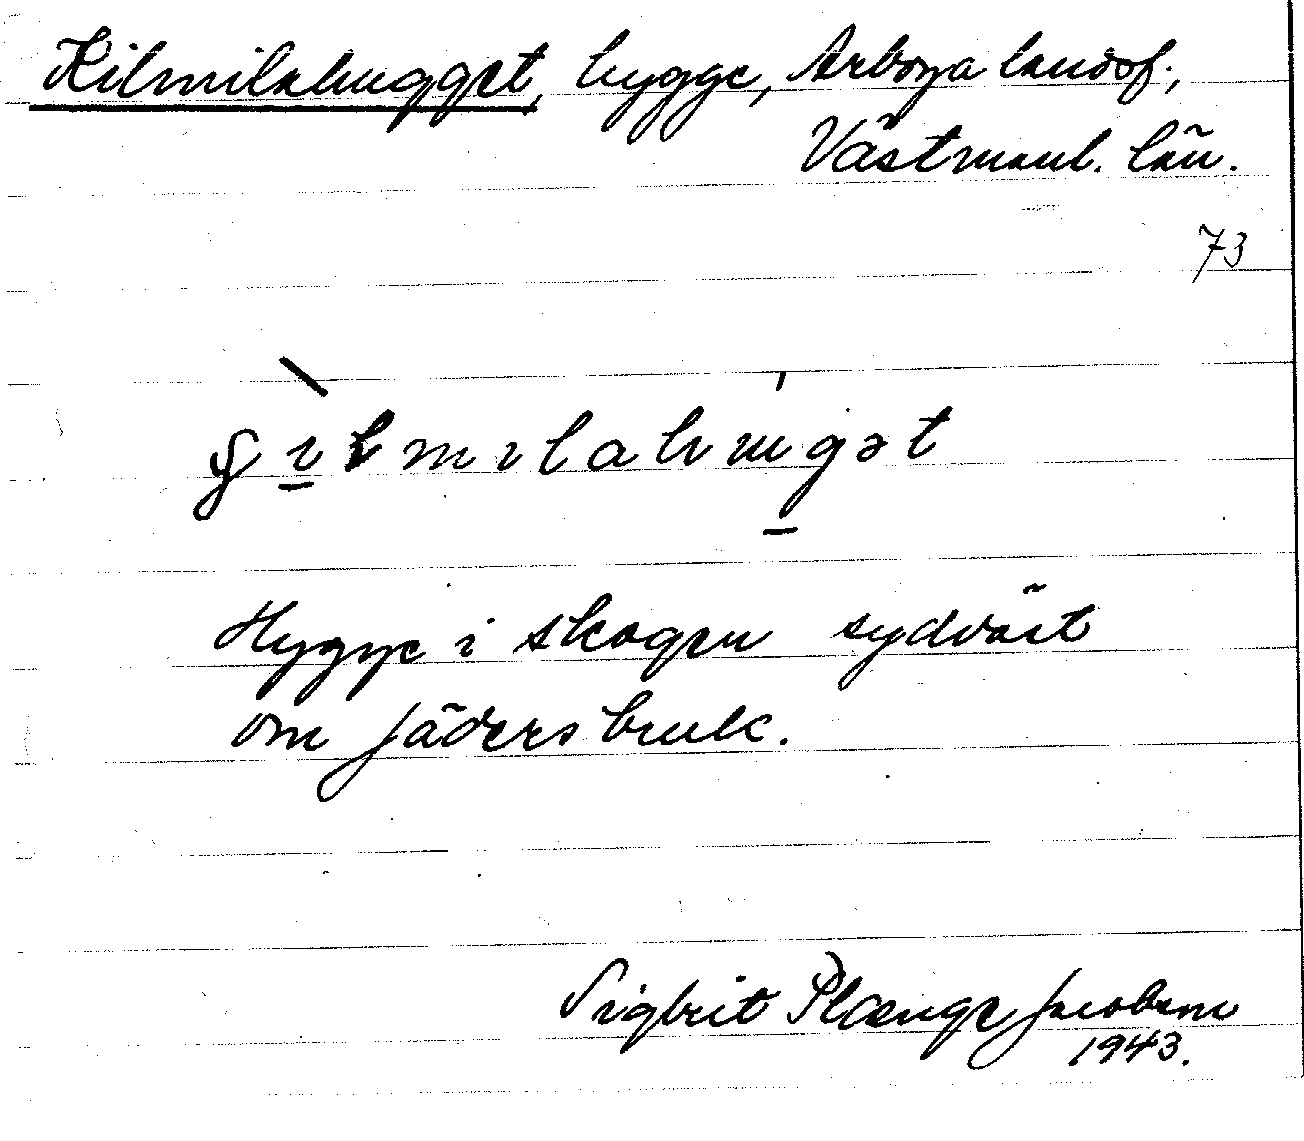 Kilmilahugget, hygge, Arboga landsf.,
Västmanl. län.
73
Hygge i skogen sydväst
om Jäders bruk.
Sigbrit Plænge Jacobson
1943.